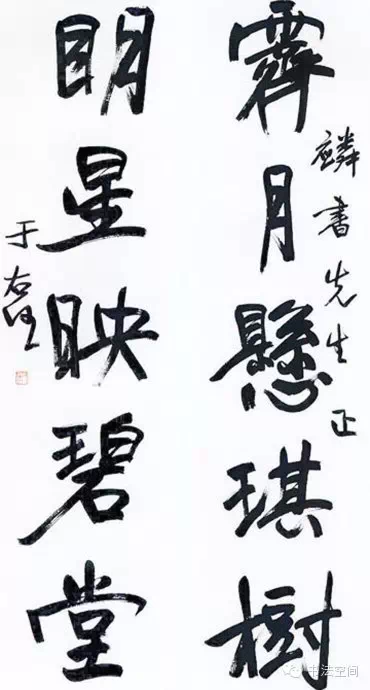 霽月懸琪樹
麟書先生正
明星映碧堂
于右任
书法空间